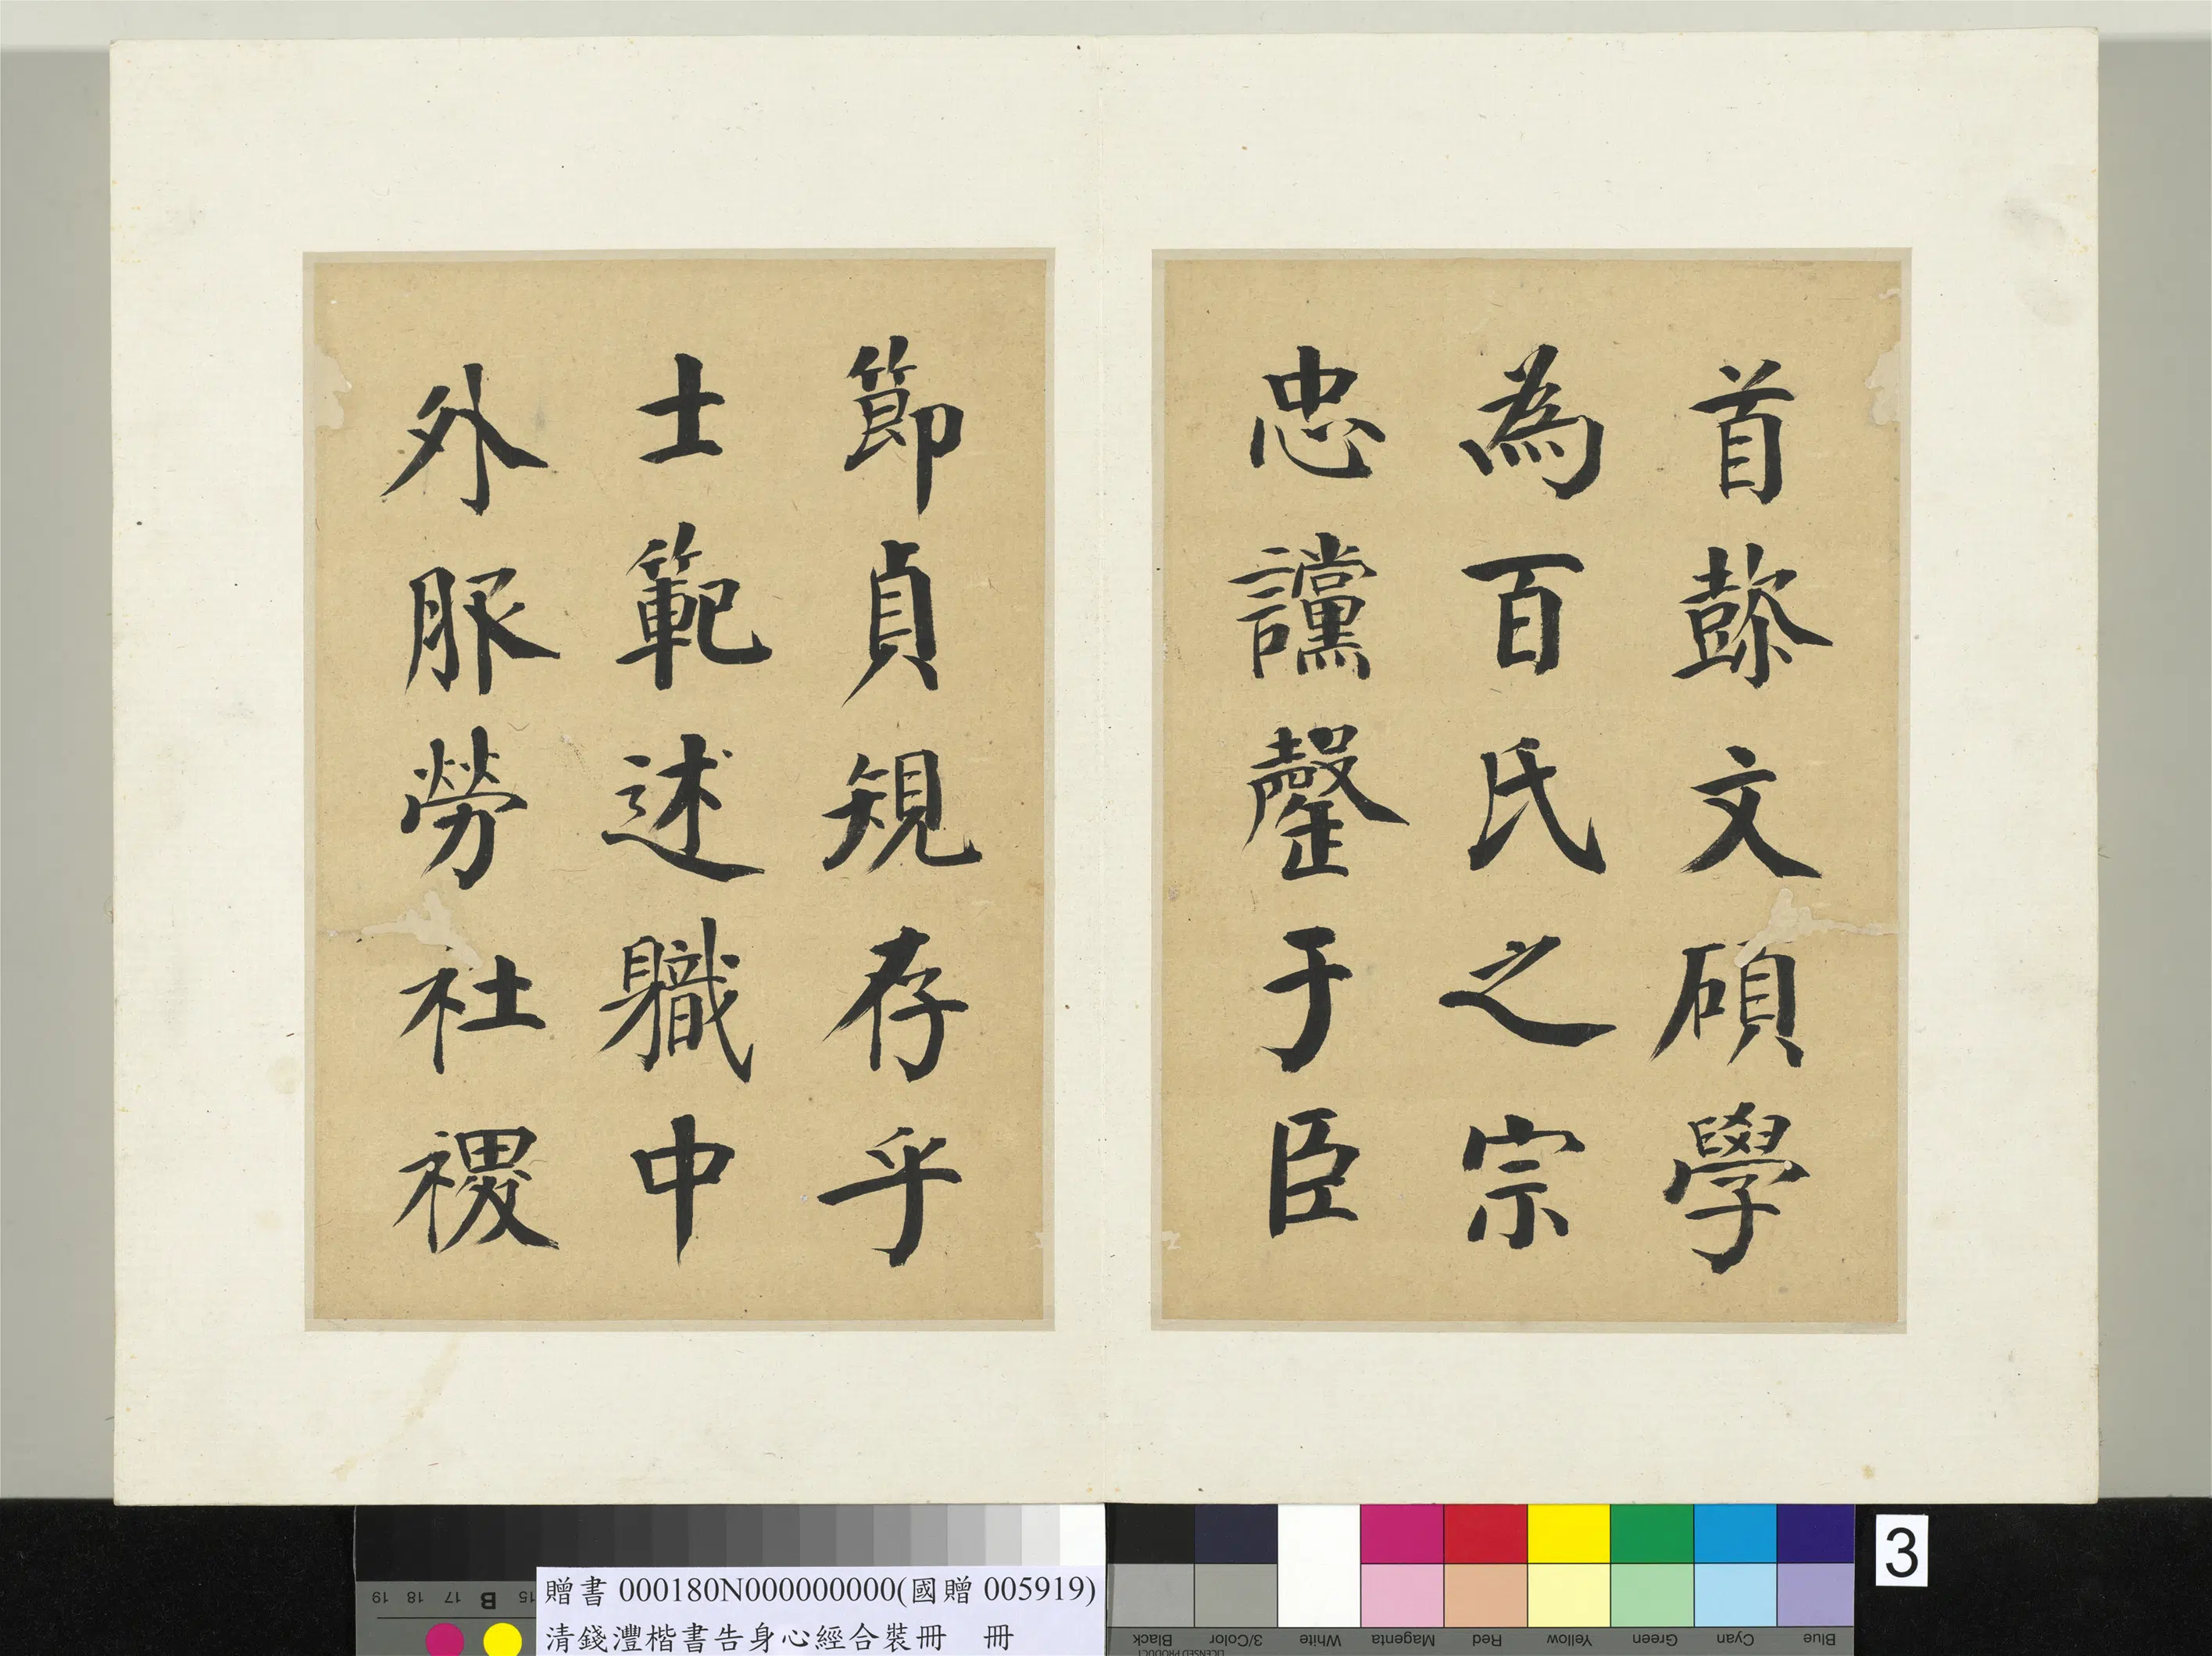 首懿文碩學
為百氏之宗
忠讜罄于臣
節貞䂓存乎
士範述軄中
外服勞社禝
贈書 000180N000000000(國贈 005919)
清錢灃楷書告身心經合裝冊 冊
19 18 17 B 15
Black 3/Color White Magenta Red Yellow Green Cyan Blue
3